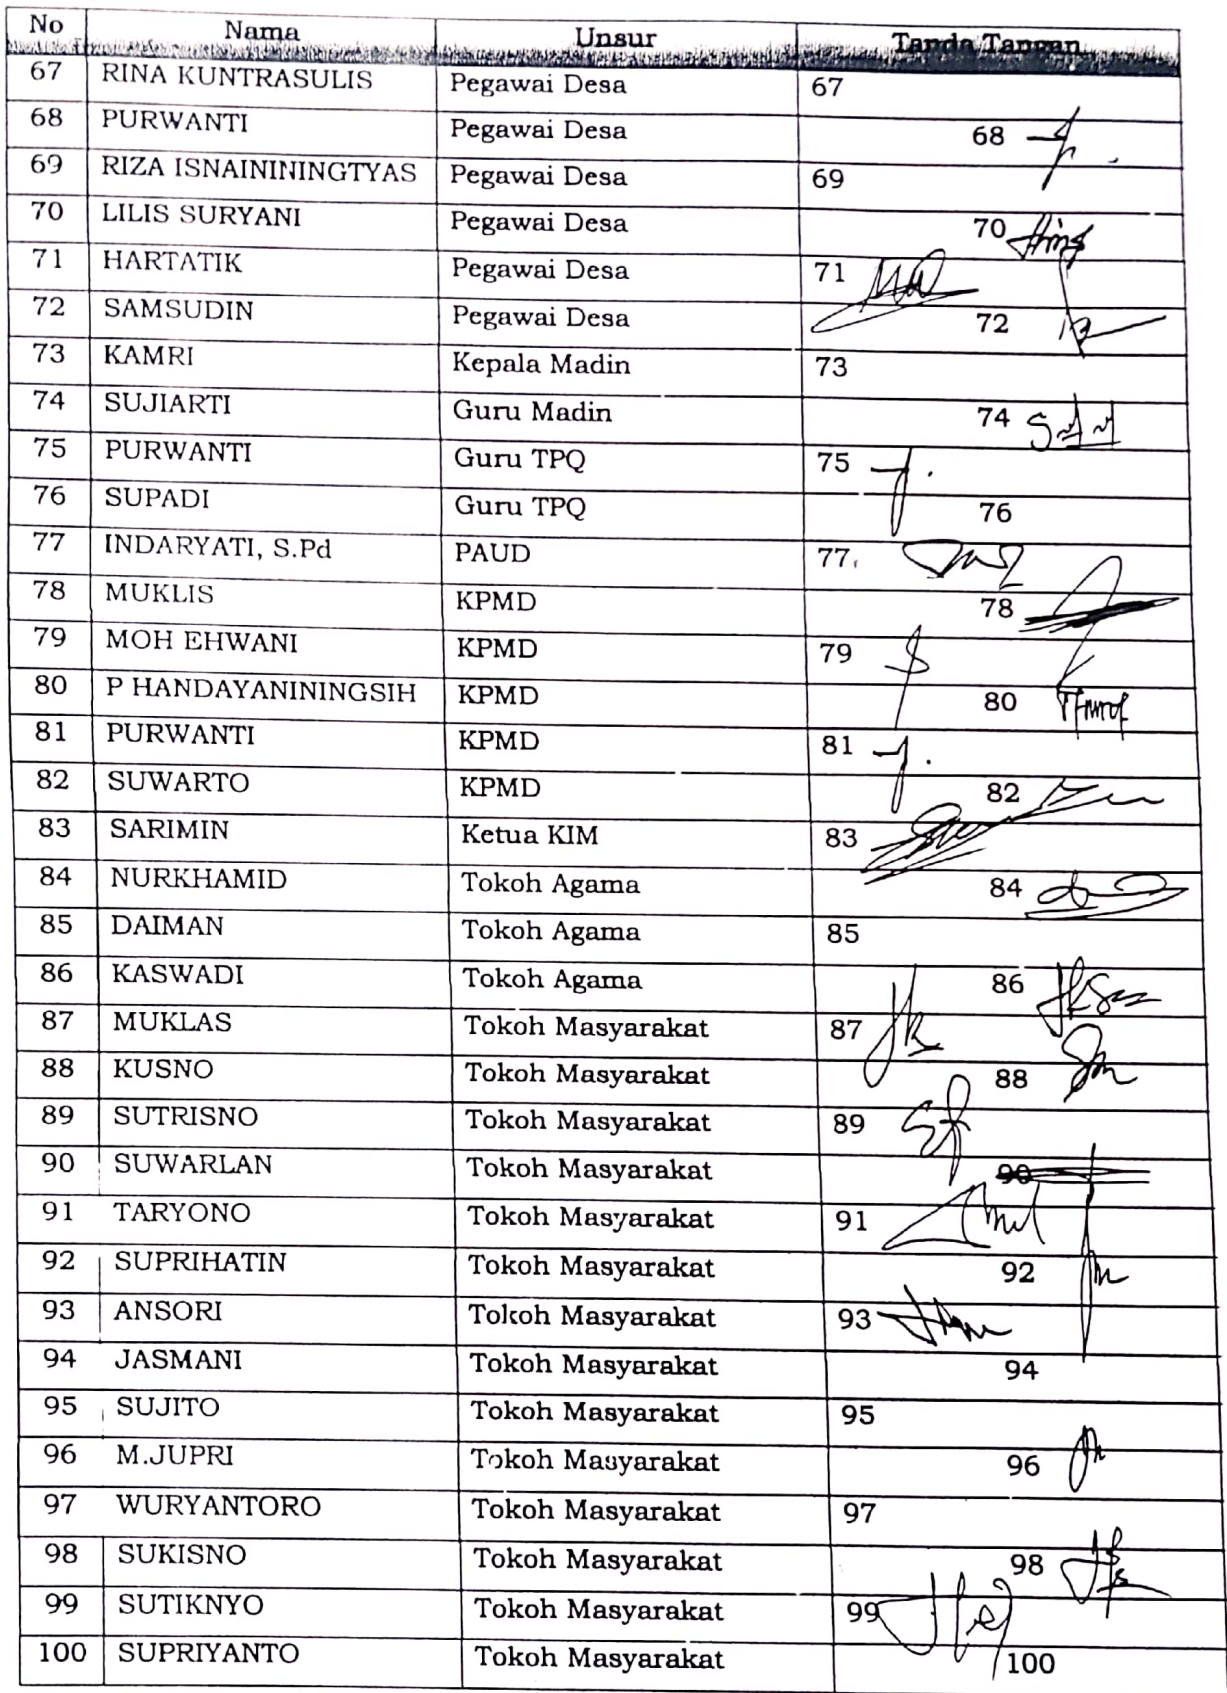 No Nama Unsur Tanda Tangan
67 RINA KUNTRASULIS Pegawai Desa 67
68 PURWANTI Pegawai Desa 68
69 RIZA ISNAINININGTYAS Pegawai Desa 69
70 LILIS SURYANI Pegawai Desa 70
71 HARTATIK Pegawai Desa 71
72 SAMSUDIN Pegawai Desa 72
73 KAMRI Kepala Madin 73
74 SUJIARTI Guru Madin 74
75 PURWANTI Guru TPQ 75
76 SUPADI Guru TPQ 76
77 INDARYATI, S.Pd PAUD 77
78 MUKLIS KPMD 78
79 MOH EHWANI KPMD 79
80 P HANDAYANININGSIH KPMD 80
81 PURWANTI KPMD 81
82 SUWARTO KPMD 82
83 SARIMIN Ketua KIM 83
84 NURKHAMID Tokoh Agama 84
85 DAIMAN Tokoh Agama 85
86 KASWADI Tokoh Agama 86
87 MUKLAS Tokoh Masyarakat 87
88 KUSNO Tokoh Masyarakat 88
89 SUTRISNO Tokoh Masyarakat 89
90 SUWARLAN Tokoh Masyarakat 90
91 TARYONO Tokoh Masyarakat 91
92 SUPRIHATIN Tokoh Masyarakat 92
93 ANSORI Tokoh Masyarakat 93
94 JASMANI Tokoh Masyarakat 94
95 SUJITO Tokoh Masyarakat 95
96 M.JUPRI Tokoh Masyarakat 96
97 WURYANTORO Tokoh Masyarakat 97
98 SUKISNO Tokoh Masyarakat 98
99 SUTIKNYO Tokoh Masyarakat 99
100 SUPRIYANTO Tokoh Masyarakat 100